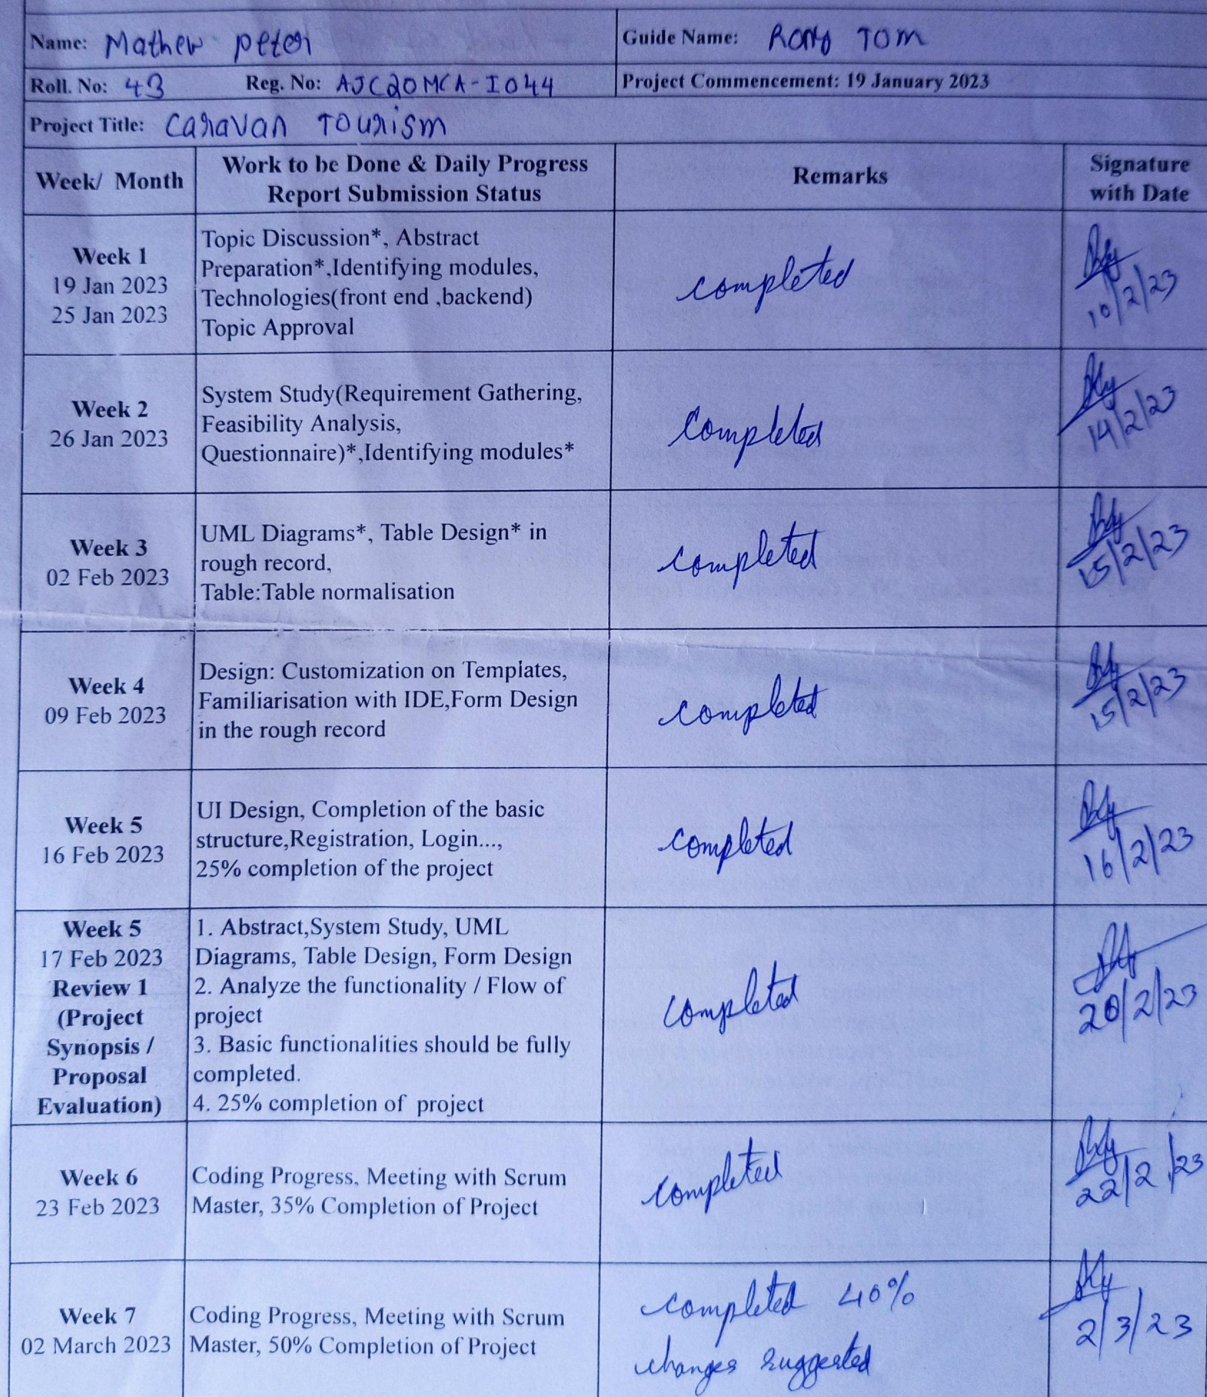 Name: Mathew peter Guide Name: Rony TOM
Roll. No: 43 Reg. No: AJC20MCA-I044 Project Commencement: 19 January 2023
Project Title: Caravan Tourism
Week/ Month Work to be Done & Daily Progress Report Submission Status Remarks Signature with Date
Week 1
19 Jan 2023
25 Jan 2023
Topic Discussion*, Abstract
Preparation*,Identifying modules,
Technologies(front end ,backend)
Topic Approval
completed
10/2/23
Week 2
26 Jan 2023
System Study(Requirement Gathering,
Feasibility Analysis,
Questionnaire)*,Identifying modules*
Completed
14/2/23
Week 3
02 Feb 2023
UML Diagrams*, Table Design* in
rough record,
Table:Table normalisation
completed
15/2/23
Week 4
09 Feb 2023
Design: Customization on Templates,
Familiarisation with IDE,Form Design
in the rough record
completed
15/2/23
Week 5
16 Feb 2023
UI Design, Completion of the basic
structure,Registration, Login...,
25% completion of the project
completed
16/2/23
Week 5
17 Feb 2023
Review 1
(Project
Synopsis /
Proposal
Evaluation)
1. Abstract,System Study, UML
Diagrams, Table Design, Form Design
2. Analyze the functionality / Flow of
project
3. Basic functionalities should be fully
completed.
4. 25% completion of project
completed
20/2/23
Week 6
23 Feb 2023
Coding Progress, Meeting with Scrum
Master, 35% Completion of Project
completed
22/2/23
Week 7
02 March 2023
Coding Progress, Meeting with Scrum
Master, 50% Completion of Project
completed 40%
changes suggested
2/3/23